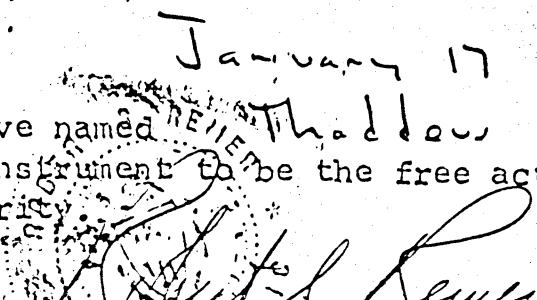 January 17
ve named Thaddeus
nstrument to be the free act
rity.